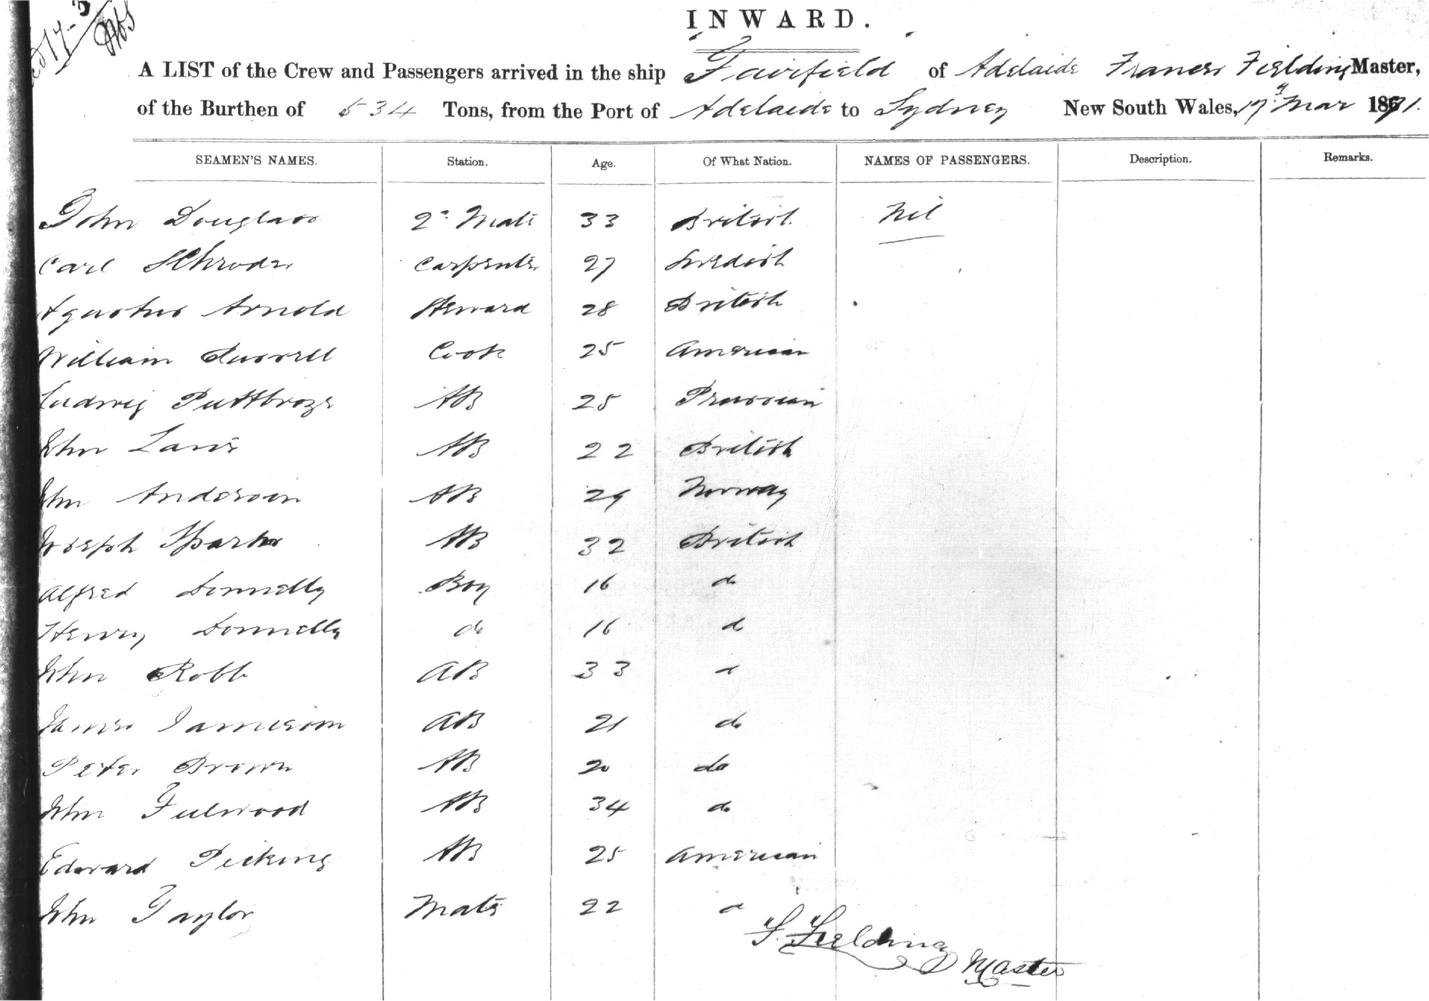 INWARD.
A LIST of the Crew and Passengers arrived in the ship Fairfield of Adelaide Francis Fielding Master,
of the Burthen of 534 Tons, from the Port of Adelaide to Sydney New South Wales, 17 Mar 1871.
SEAMEN'S NAMES. Station. Age. Of What Nation. NAMES OF PASSENGERS. Description. Remarks.
John Douglass 2d Mate 33 British Nil
Carl Schroder Carpenter 27 Swedish
Agustus Arnold Steward 28 British
William Durrell Cook 25 American
Ludwig AB 25 Prussian
John AB 22 British
John Anderson AB 29 Norway
Joseph Sparks AB 32 British
Alfred Donnelly Boy 16 do
Henry Donnelly do 16 do
John Robb AB 33 do
James Jamieson AB 21 do
Peter Brown AB 20 do
John Fulwood AB 34 do
Edward Picking AB 25 American
John Taylor Mate 22 do
F. Fielding
Master